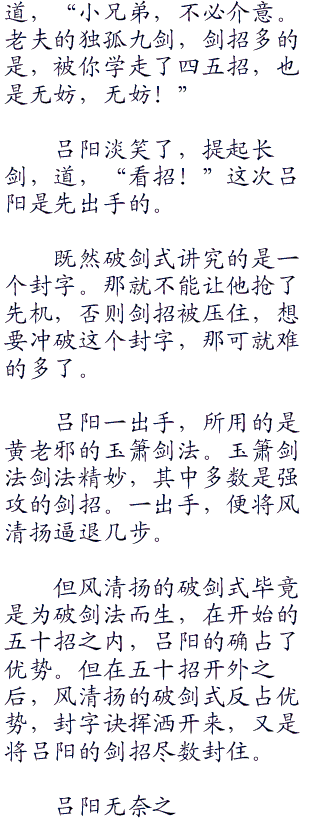 道，“小兄弟，不必介意。
老夫的独孤九剑，剑招多的
是，被你学走了四五招，也
是无妨，无妨！”
吕阳淡笑了，提起长
剑，道，“看招！”这次吕
阳是先出手的。
既然破剑式讲究的是一
个封字。那就不能让他抢了
先机，否则剑招被压住，想
要冲破这个封字，那可就难
的多了。
吕阳一出手，所用的是
黄老邪的玉箫剑法。玉箫剑
法剑法精妙，其中多数是强
攻的剑招。一出手，便将风
清扬逼退几步。
但风清扬的破剑式毕竟
是为破剑法而生，在开始的
五十招之内，吕阳的确占了
优势。但在五十招开外之
后，风清扬的破剑式反占优
势，封字诀挥洒开来，又是
将吕阳的剑招尽数封住。
吕阳无奈之